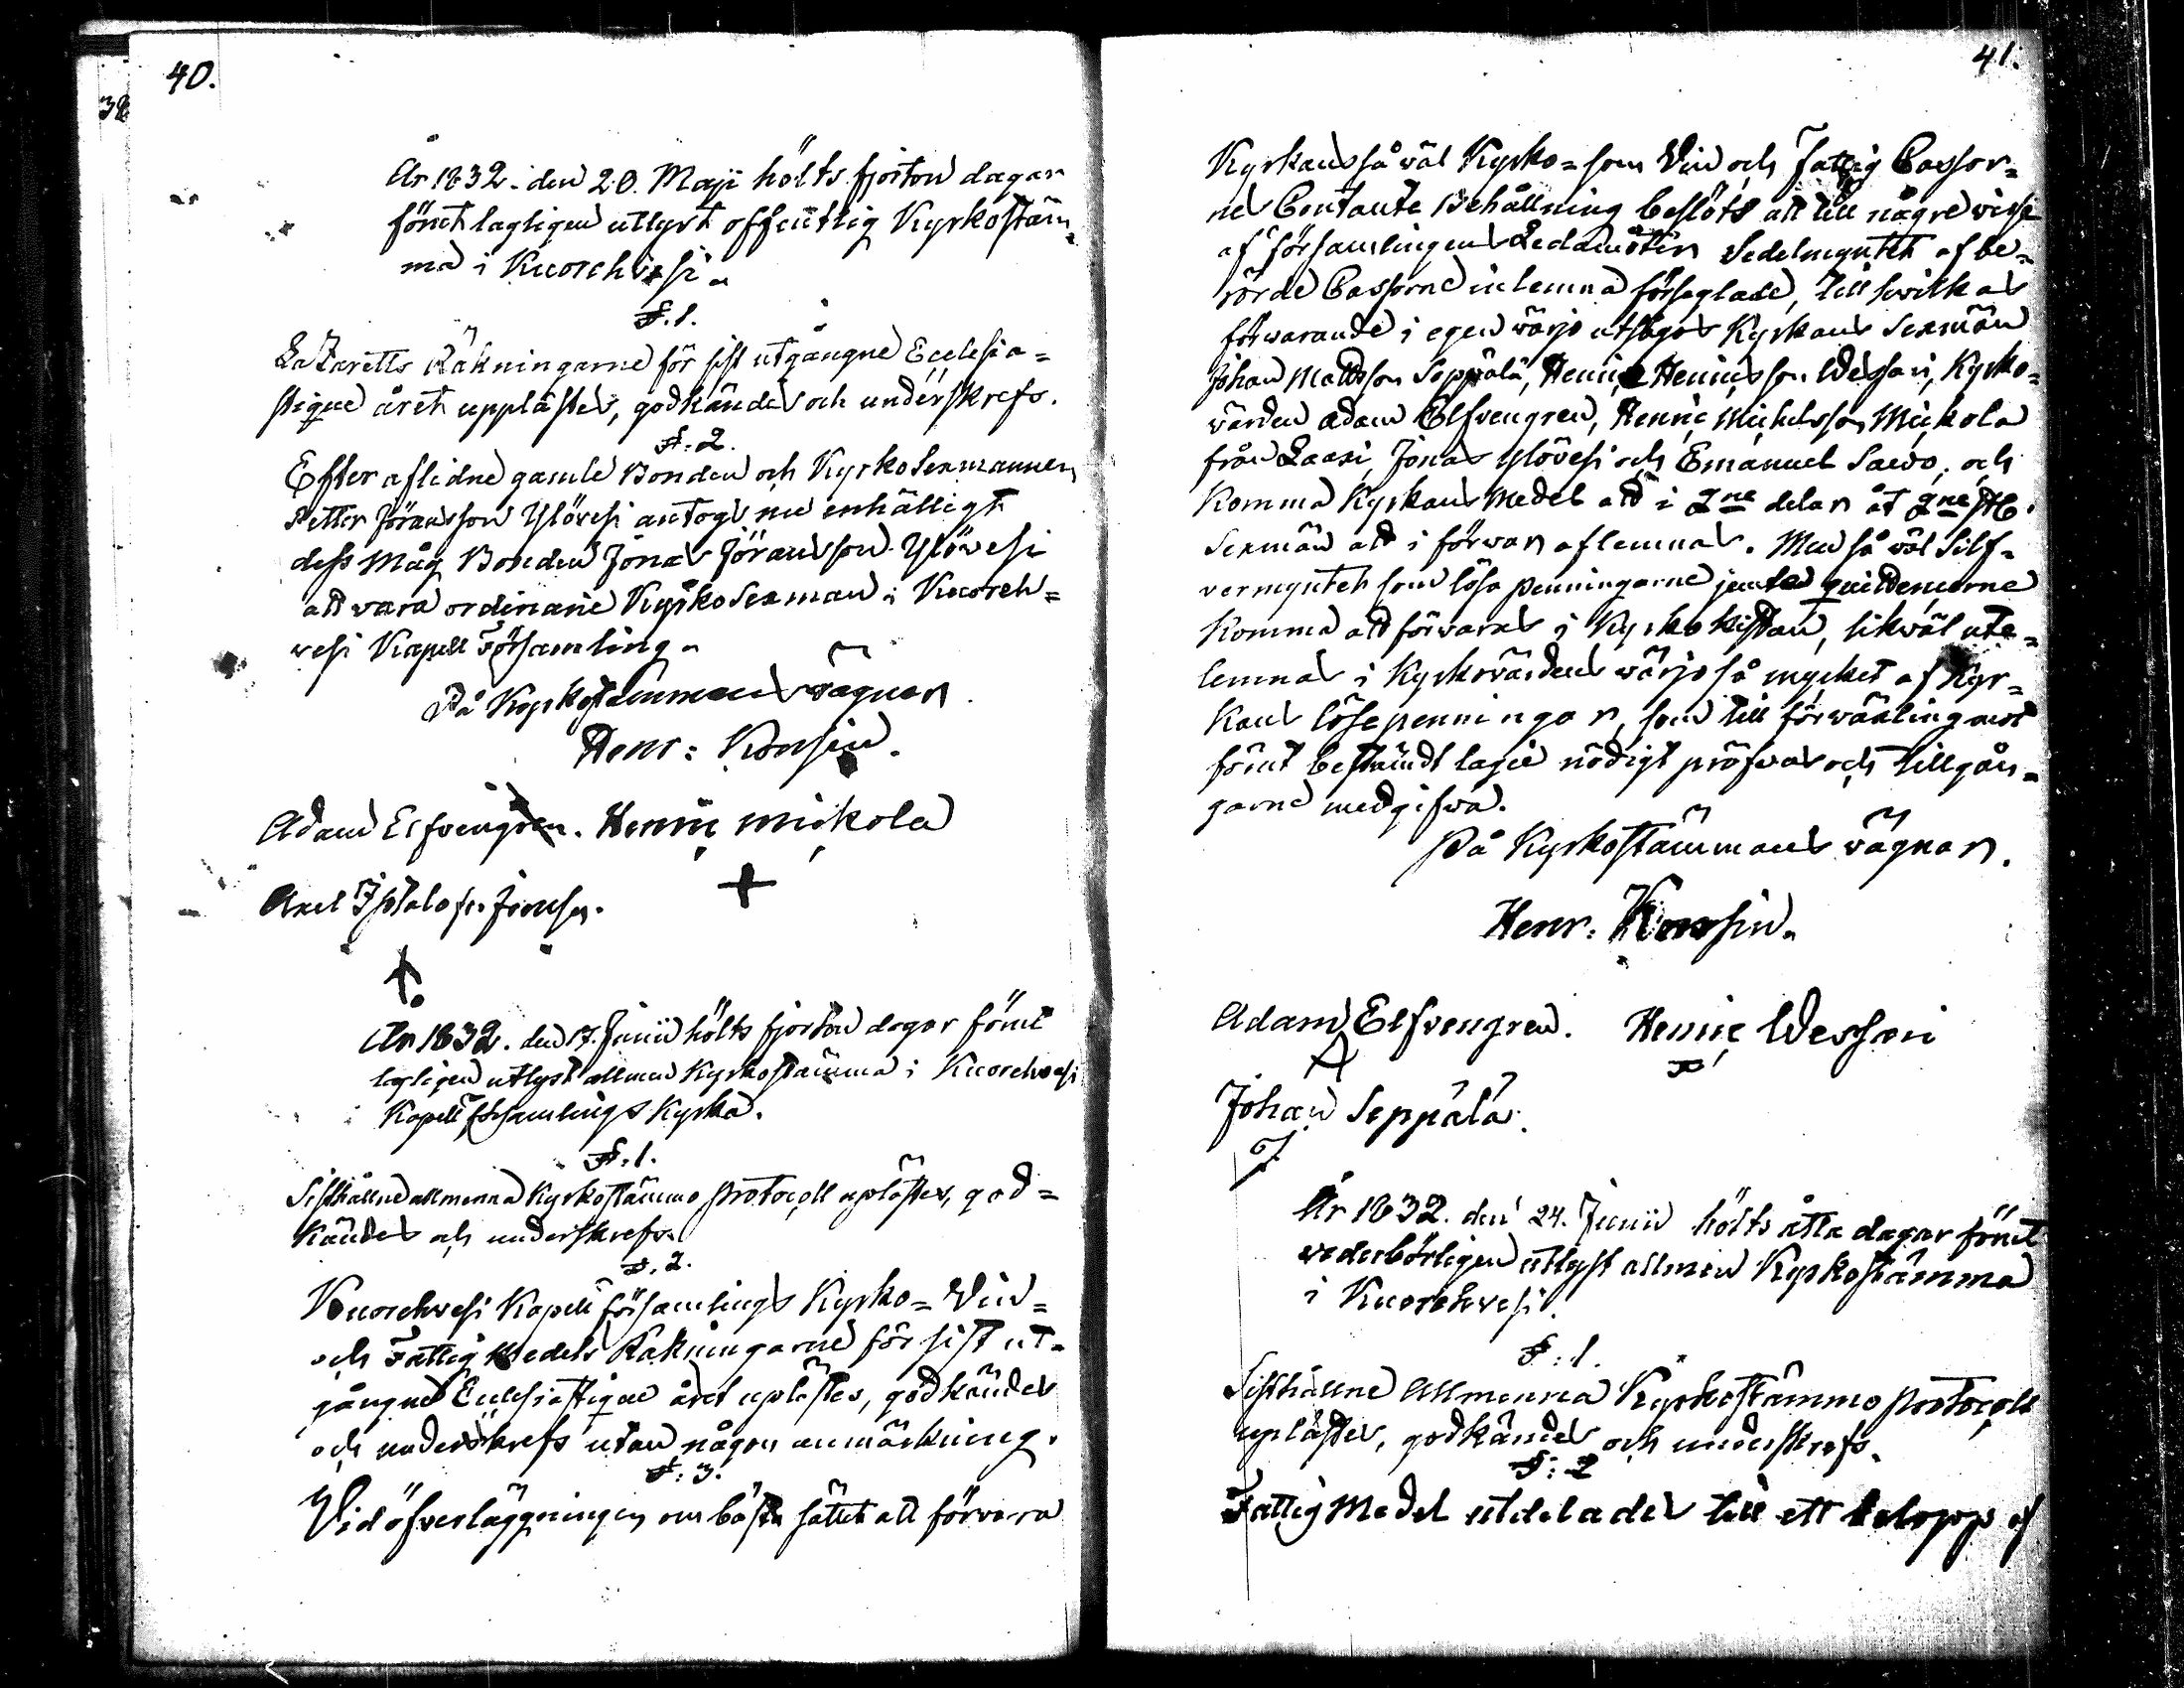 40.
38
År 1832. den 20. Maji hölts fjorton dagar
förut lagligen utlyst offentlig Kyrkostäm¬
ma i Kuorehvesi.
§. 1.
Lazaretts Räkningarne för sist utgångne Ecclesia=
stique året upplästes, godkändes och underskrefs.
§. 2.
Efter aflidne gamle Bonden och Kyrko Sexmannen
Petter Jöransson Ylövesi antogs nu enhälligt
dess Måg Bonden Jonas Jöransson Ylövesi
att vara ordinarie Kyrko Sexman i Kuoreh=
vesi Kapell Församling.
På Kyrkostämmans vägnar
Henr: Konsin.
Adam Elfvengren. Henric Mickola
Axel Isotalo
År 1832. den 17. Junii hölts fjorton dagar förut
lagligen utlyst allmen Kyrkostämma i Kuorehvesi
Kapell församlings Kyrka.
§: 1.
Sisthållne allmenna Kyrkostämmo Protocoll uplästes, god=
kändes och underskrefs.
§. 2.
Kuorehvesi Kapell församlings Kyrko= Vin=
och Fattig Medels Räkningarne för sist ut¬
gångne Ecclesiastique året uplästes, godkändes
och underskrefs utan någon anmärkning.
§: 3.
Vid öfverläggningen om bästa sättet att förvara
41.
Kyrkans så väl Kyrko= som Vin och Fattig Cassor¬
nes Contante Behållning beslöts att till någre visse
af församlingens Ledamöter Sedelmyntet af be¬
rörde Cassorne inlemna förseglade, till hvilkas
förvarande i egen värjo utsågos Kyrkans Sexmän
Johan Mattsson Seppälä, Henric Henricsson Wessari, Kyrko=
värden Adam Elfvengren, Henric Michelsson Mickola
från Laasi, Jonas Ylövesi och Emanuel Sawo, och
Komma Kyrkans Medel att i 2ne delar åt 2ne
Sexmän att i förvar aflemnas. Men så väl Silf¬
vermyntet som lösa penningarne jemte quittencerne
Komma att förvaras i Kyrko kistan, likväl ute¬
lemnas i Kyrkovärdens värjo så mycket af Kyr=
kans lösepenningar, som till förväxling emot
förut bestämdt lagie nödigt pröfvas och tillgån¬
garne medgifva.
På Kyrkostämmans vägnar.
Henr: Konsin.
Adam Elfvengren. Henric Wessari
Johan Seppälä.
År 1832. den 24. Junii hölts åtta dagar förut
vederbörligen utlyst allmen Kyrkostämma
i Kuorehvesi.
§: 1.
Sisthållne Allmenna Kyrkostämmo protocoll
uplästes, godkändes och underskrefs.
§: 2
Fattig Medel utdelades till ett belopp af